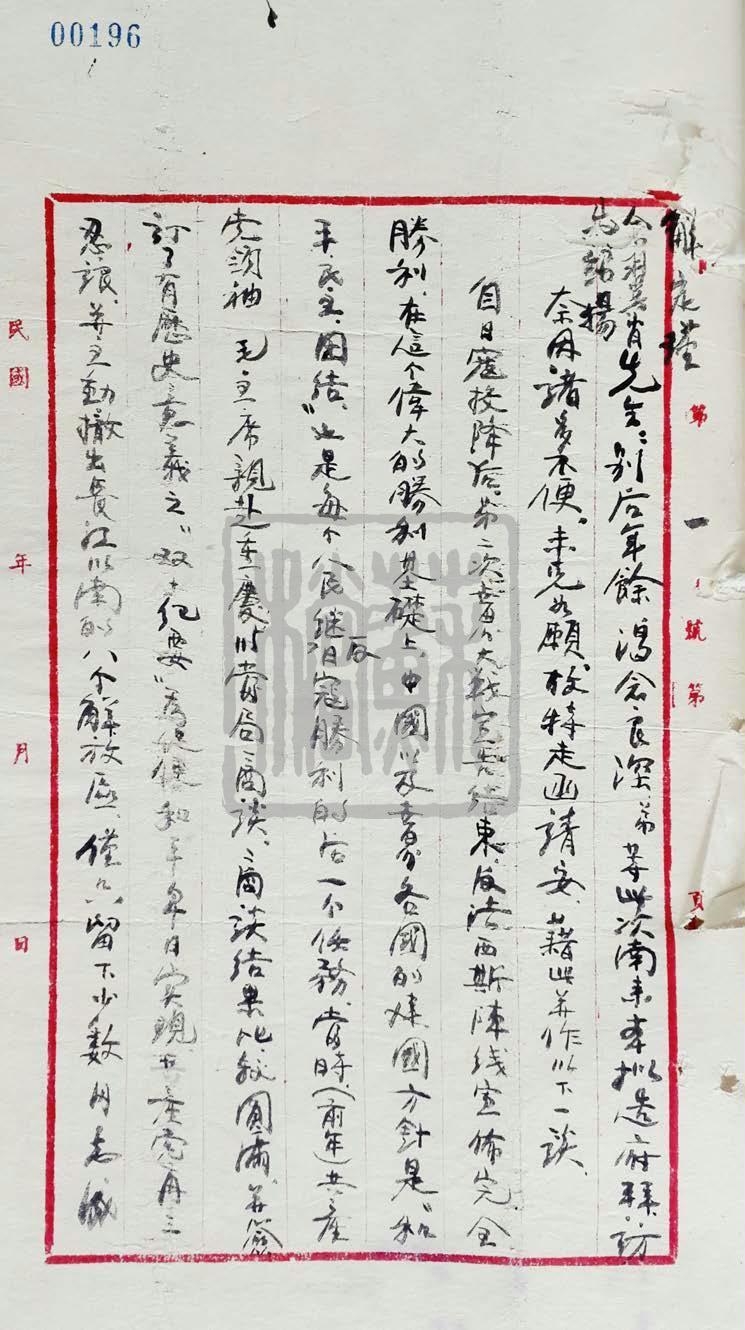 00196
第一號第 頁
先生:別后年餘渴念良深,弟等此次南来本拟造府拜訪
奈因諸多不便,未克如願,故特走函請安,藉此并作以下一談,
自日寇投降后,第二次世界大戰宣告结束,反法西斯陣线宣佈完全
勝利,在這个偉大的勝利基礎上,中國以及世界各國的建國方針是"和
平、民主、團结,"也是每个人民继日寇勝利的后一个任務,當時(前年)共產
党領袖 毛主席親赴重慶以當局商谈,商谈结果比较圓滿,并簽
訂了有歷史意義之"双十纪要"為促使和平早日实現,共產党再三
忍讓,并主動撤出長江以南的八个解放區,僅只留下少數同志
民國 年 月 日